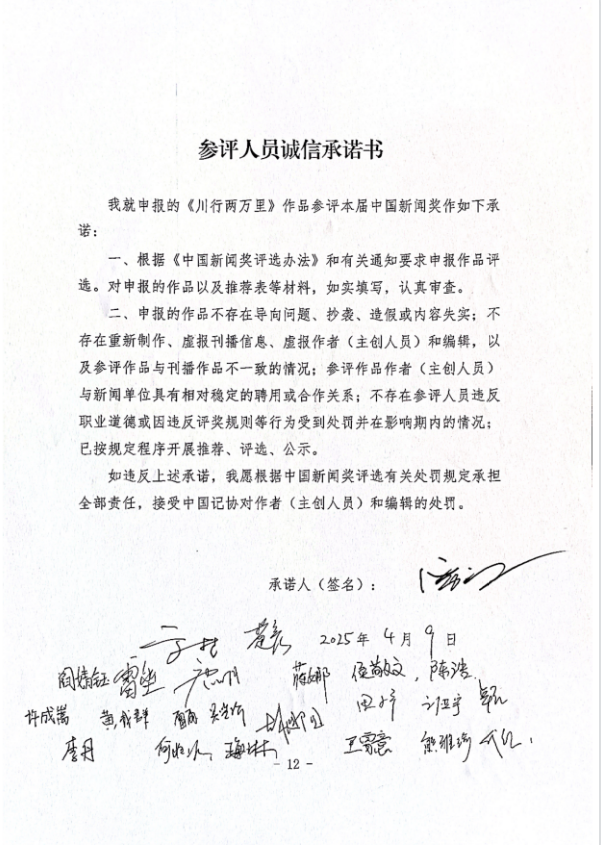 参评人员诚信承诺书
我就申报的《川行两万里》作品参评本届中国新闻奖作如下承
诺：
一、根据《中国新闻奖评选办法》和有关通知要求申报作品评
选。对申报的作品以及推荐表等材料，如实填写，认真审查。
二、申报的作品不存在导向问题、抄袭、造假或内容失实；不
存在重新制作、虚报刊播信息、虚报作者（主创人员）和编辑，以
及参评作品与刊播作品不一致的情况；参评作品作者（主创人员）
与新闻单位具有相对稳定的聘用或合作关系；不存在参评人员违反
职业道德或因违反评奖规则等行为受到处罚并在影响期内的情况；
已按规定程序开展推荐、评选、公示。
如违反上述承诺，我愿根据中国新闻奖评选有关处罚规定承担
全部责任，接受中国记协对作者（主创人员）和编辑的处罚。
承诺人（签名）：
2025年 4月 9日
蒋娜 陈浩
许成嵩 刘亚宇
李丹 熊雅琦
- 12 -